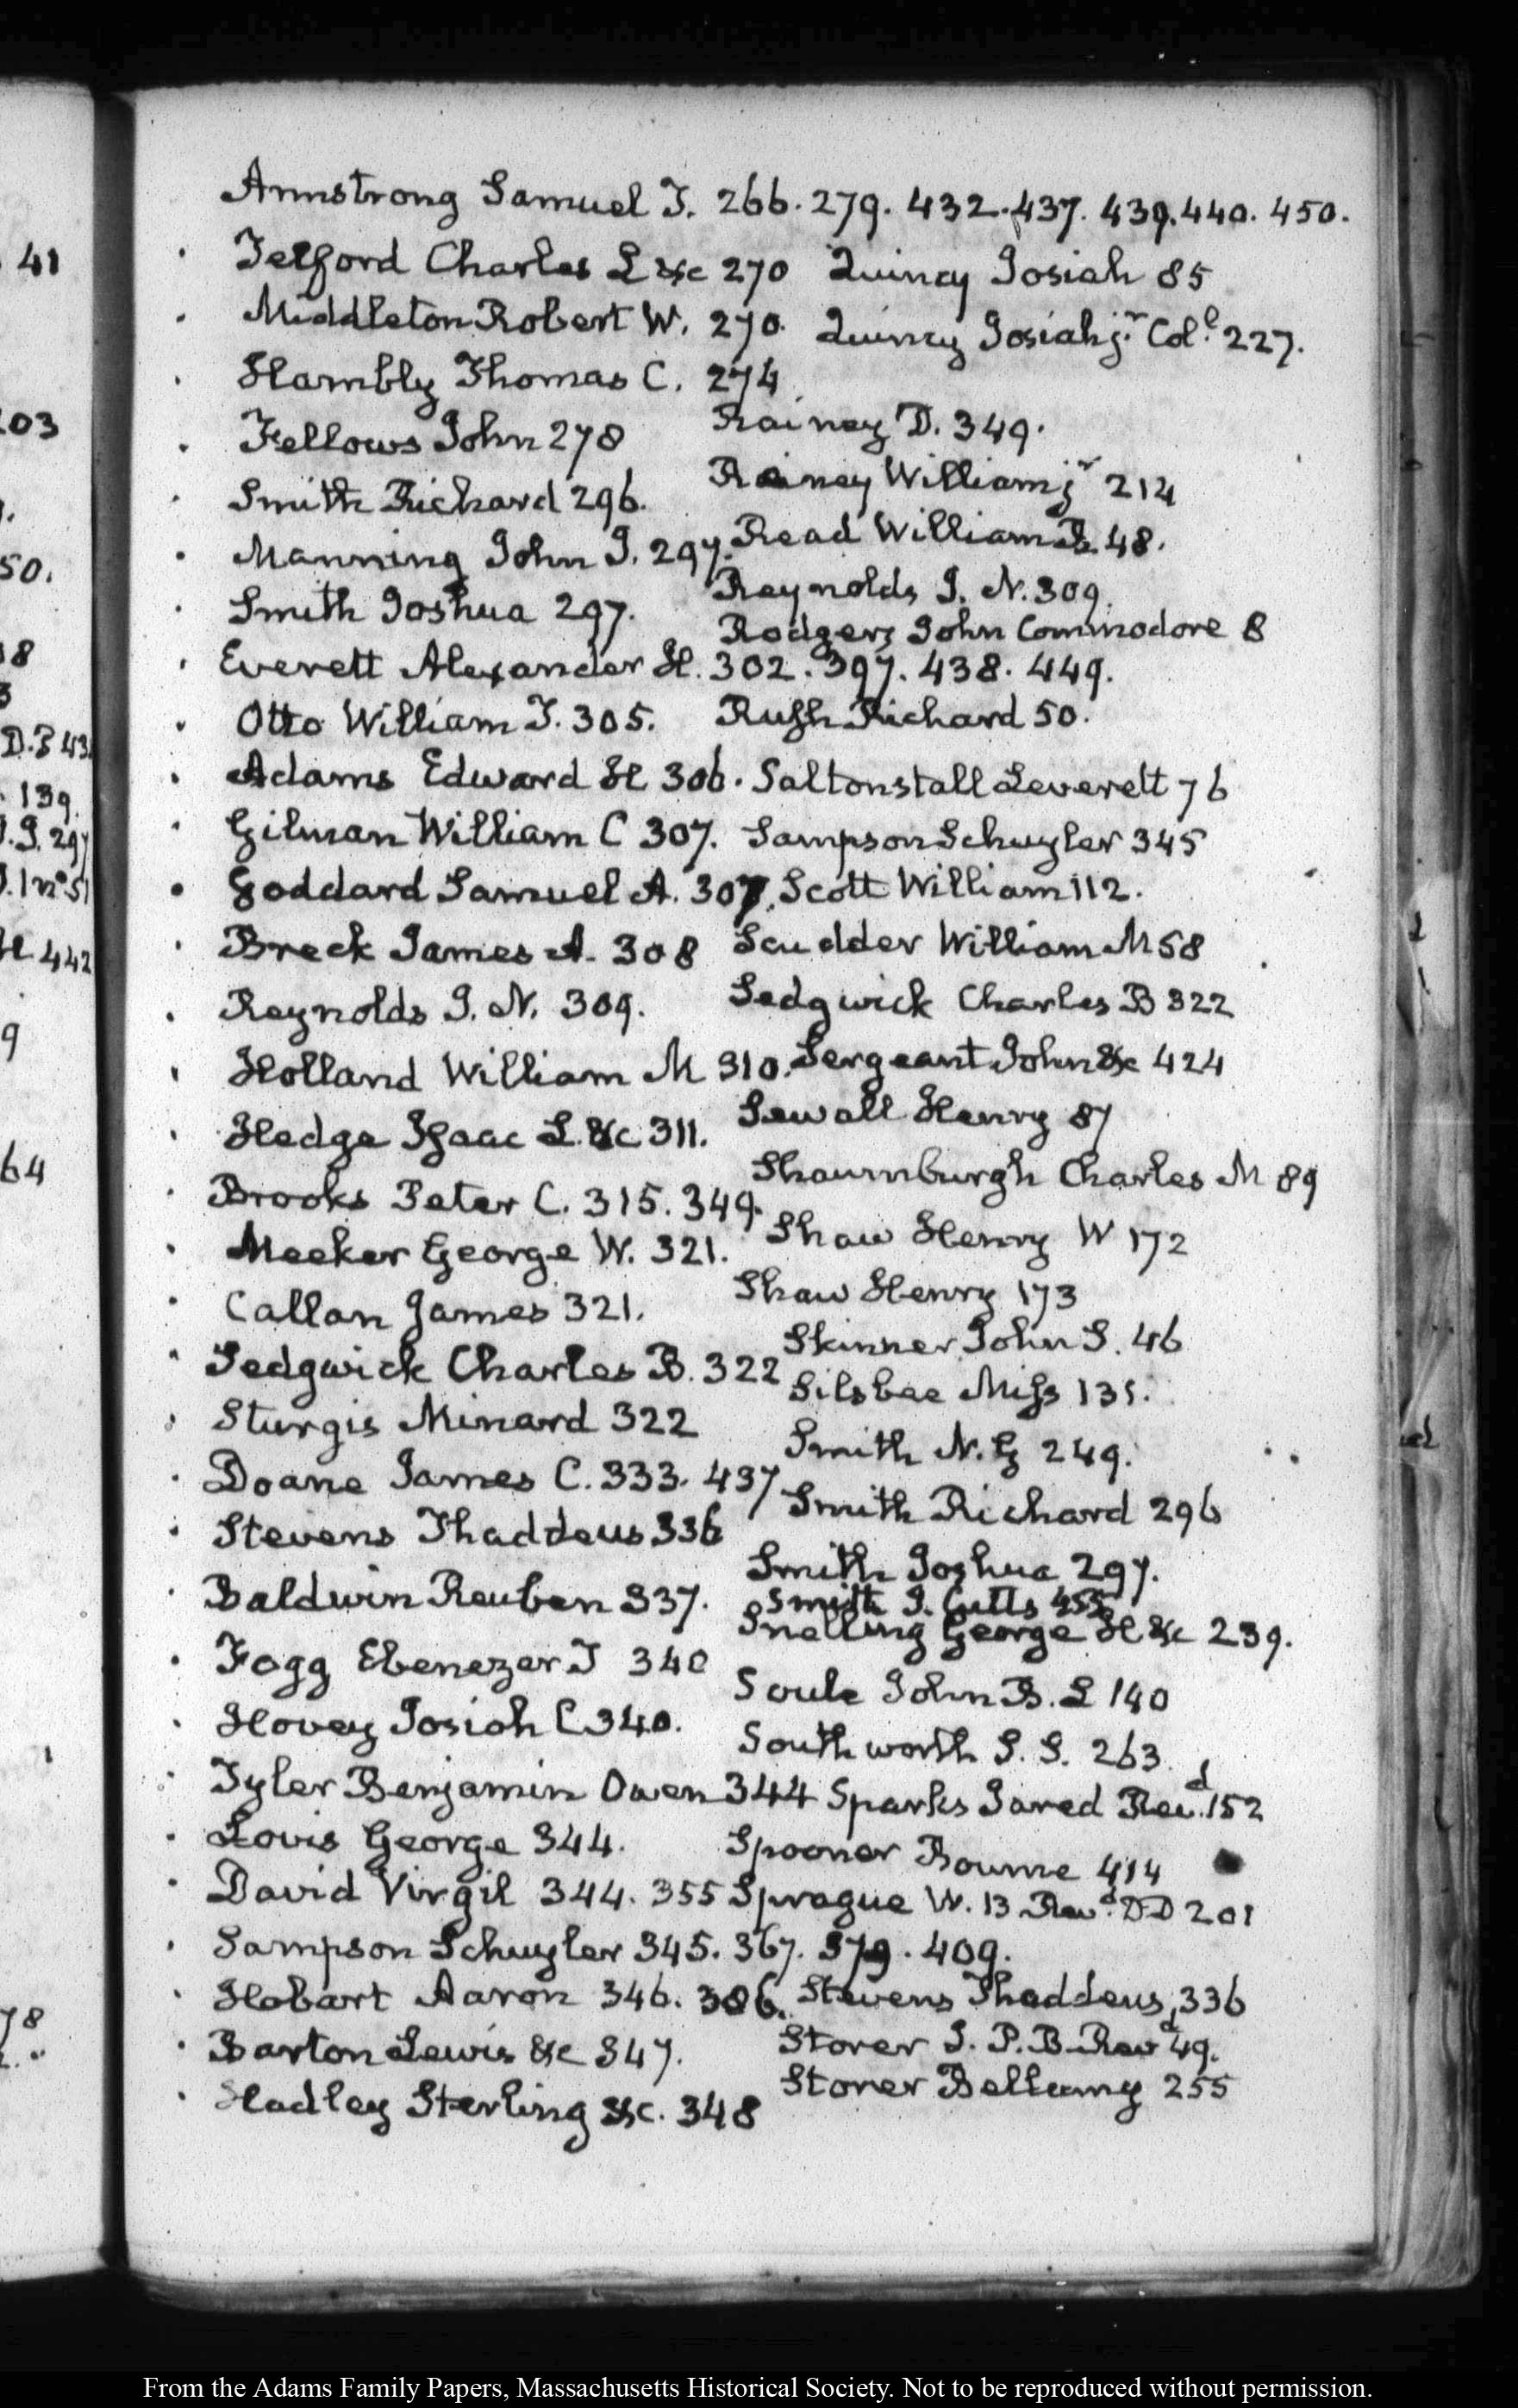 Armstrong Samuel T. 266. 279. 432. 437. 439. 440. 450.
Telford Charles L &c 270 Quincy Josiah 85
Middleton Robert W. 270. Quincy Josiah jr. Col.l 227.
Hambly Thomas C. 274
Rainey D. 349.
Fellows John 278
Rainey William jr 214
Smith Richard 296.
Read William B. 48.
Manning John J. 297.
Reynolds J. N. 309.
Smith Joshua 297.
Rodgers John Commodore 8
Everett Alexander H. 302. 397. 438. 449.
Otto William T. 305. Rush Richard 50.
Adams Edward H 306. Saltonstall Leverett 76
Gilman William C 307. Sampson Schuyler 345
Goddard Samuel A. 307. Scott William 112.
Breck James A. 308 Scudder William M 58
Reynolds J. N. 309. Sedgwick Charles B 322
Holland William M 310. Sergeant John &c 424
Hedge Isaac L. &c 311. Sewall Henry 87
Shaumburgh Charles M 89
Brooks Peter C. 315. 349.
Shaw Henry W 172
Meeker George W. 321.
Shaw Henry 173
Callan James 321.
Skinner John S. 46
Sedgwick Charles B. 322
Silsbee Miss 131.
Sturgis Minard 322
Smith N. G 249.
Doane James C. 333. 437
Smith Richard 296
Stevens Thaddeus 336
Smith Joshua 297.
Baldwin Reuben 337.
Smith J. Cutts 455
Snelling George H &c 239.
Fogg Ebenezer T 340
Soule John B. L 140
Hovey Josiah C 340.
Southworth S. S. 263.
Tyler Benjamin Owen 344 Sparks Jared Rev.d 152
Lovis George 344. Spooner Bourne 414
David Virgil 344. 355 Sprague W. B Rev.d DD 201
Sampson Schuyler 345. 367. 379. 409.
Hobart Aaron 346. 386. Stevens Thaddeus, 336
Barton Lewis &c 347. Storer J. P. B. Rev.d 49.
Storer Bellamy 255
Hadley Sterling &c. 348
41
03
50.
18
3
D. P 43
139
J. 297
H 442
9
64
78
From the Adams Family Papers, Massachusetts Historical Society. Not to be reproduced without permission.